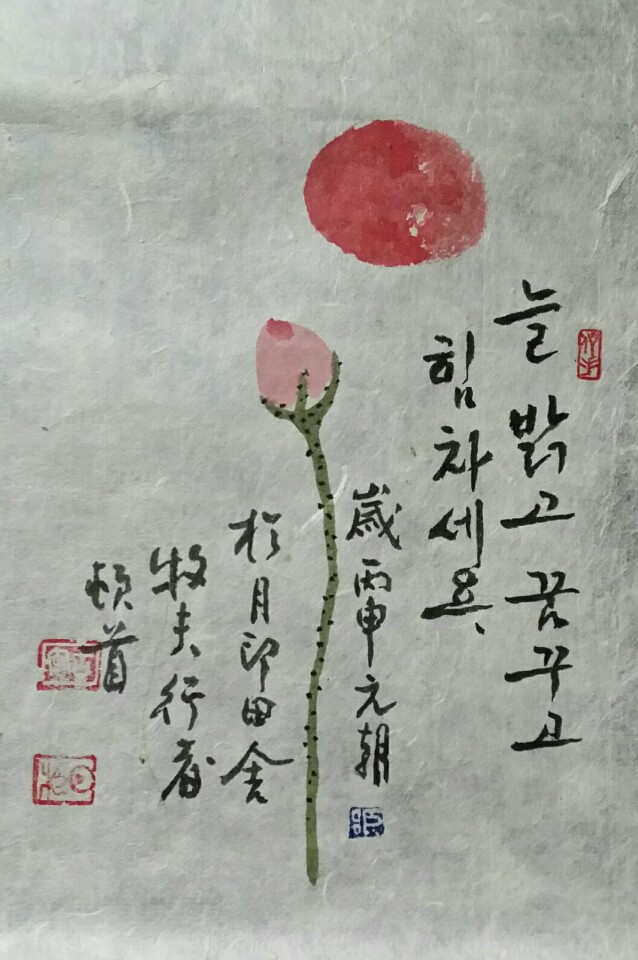 늘 밝고 꿈꾸고
힘차세요
歲丙申元朝
於月印田舍
牧夫行者
頓首